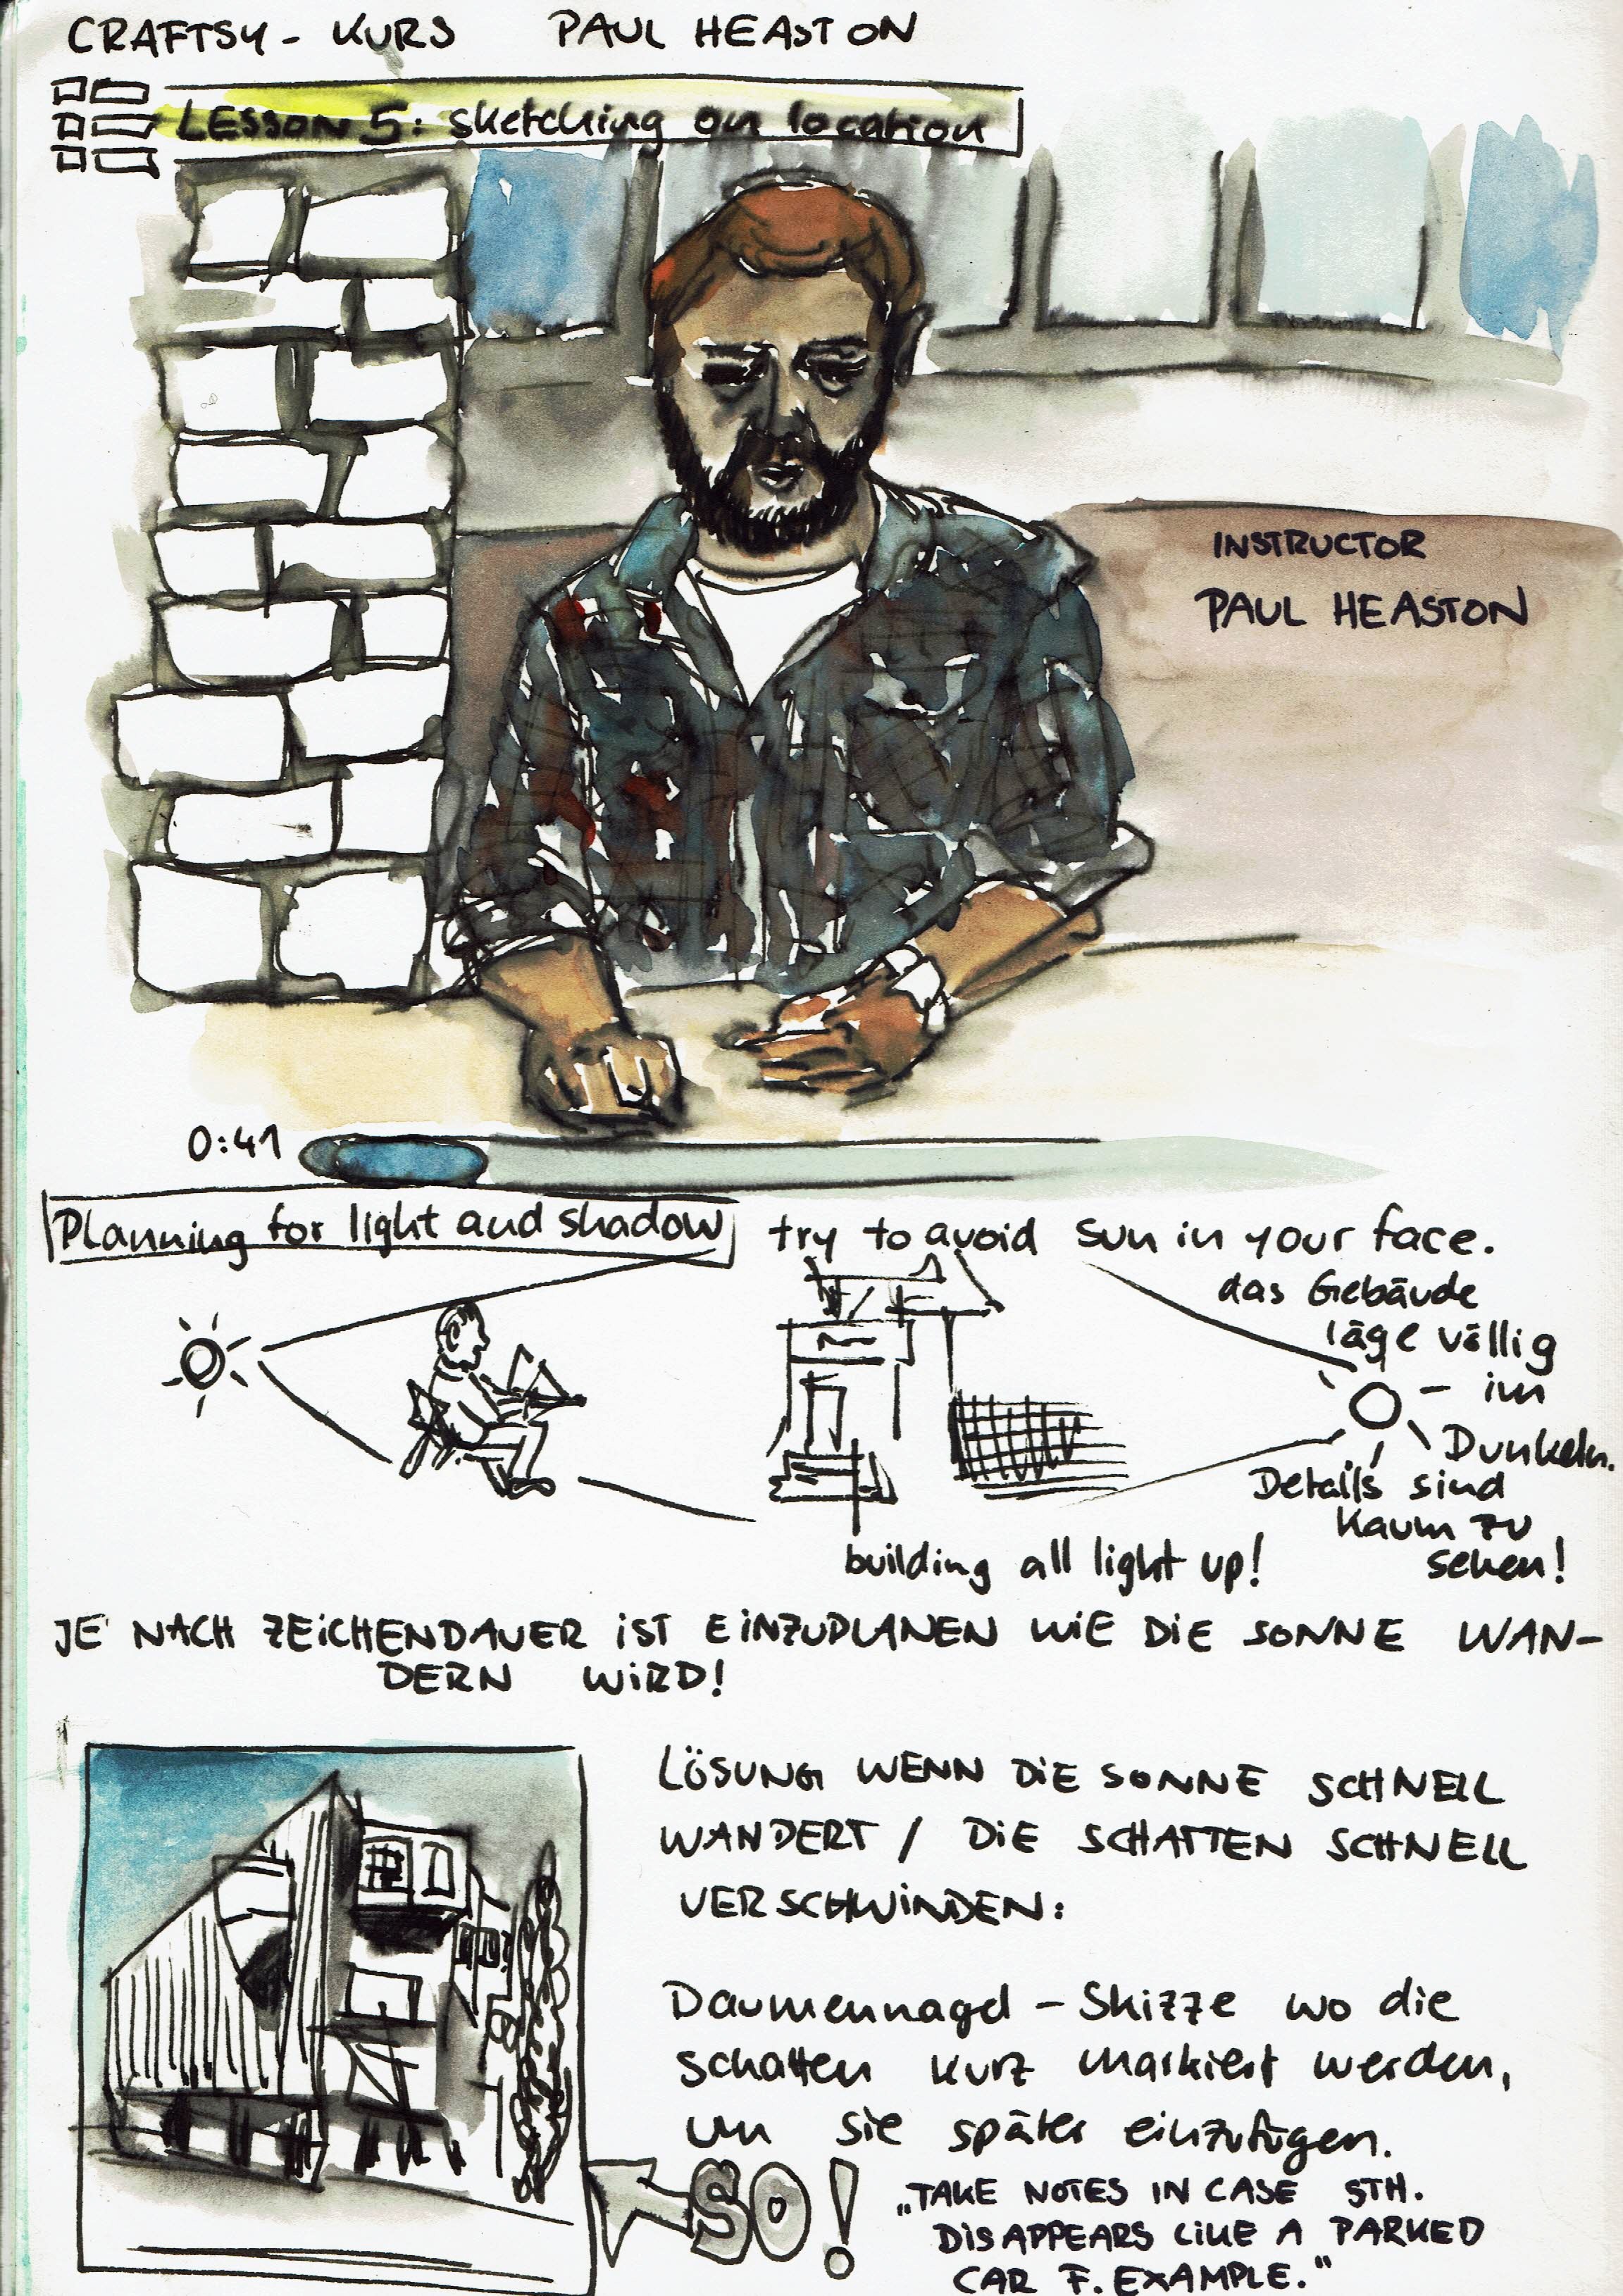 CRAFTSY - KURS PAUL HEASTON
LESSON 5: sketching on location
INSTRUCTOR
PAUL HEASTON
0:41
Planning for light and shadow try to avoid sun in your face.
das Gebäude
läge völlig
im
Dunkeln.
Details sind
kaum zu
sehen!
building all light up!
JE NACH ZEICHENDAUER IST EINZUPLANEN WIE DIE SONNE WAN-
DERN WIRD!
LÖSUNG WENN DIE SONNE SCHNELL
WANDERT / DIE SCHATTEN SCHNELL
VERSCHWINDEN:
Daumennagel - Skizze wo die
schatten kurz markiert werden,
um sie später einzufügen.
SO!
„TAKE NOTES IN CASE STH.
DISAPPEARS LIKE A PARKED
CAR F. EXAMPLE."